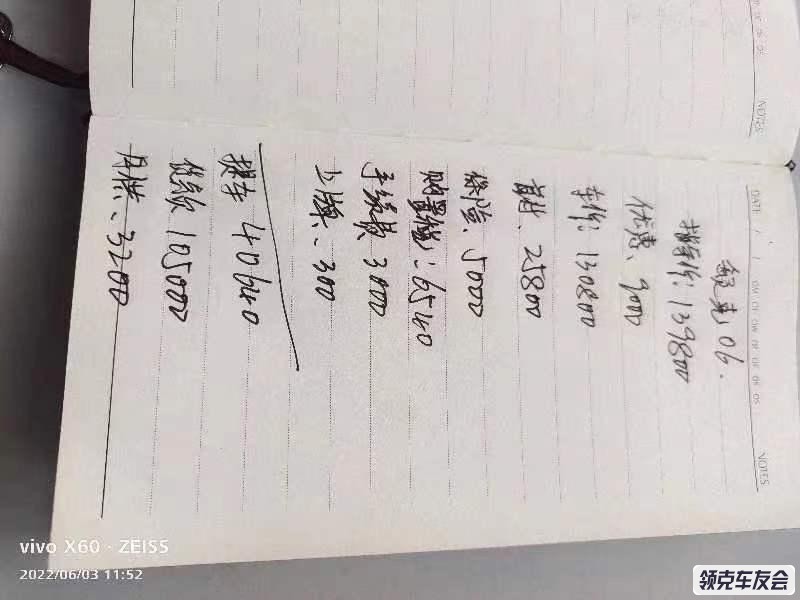 领克06.
指导价:139800
优惠、9000
车价:130800
首付、25800
保险、5000
购置税:6540
手续费 3000
上牌、300
提车 40640
贷款 105000
月供、3200
DATE / /
NOTES
NOTES
vivo X60 · ZEISS
2022/06/03 11:52
领克车友会